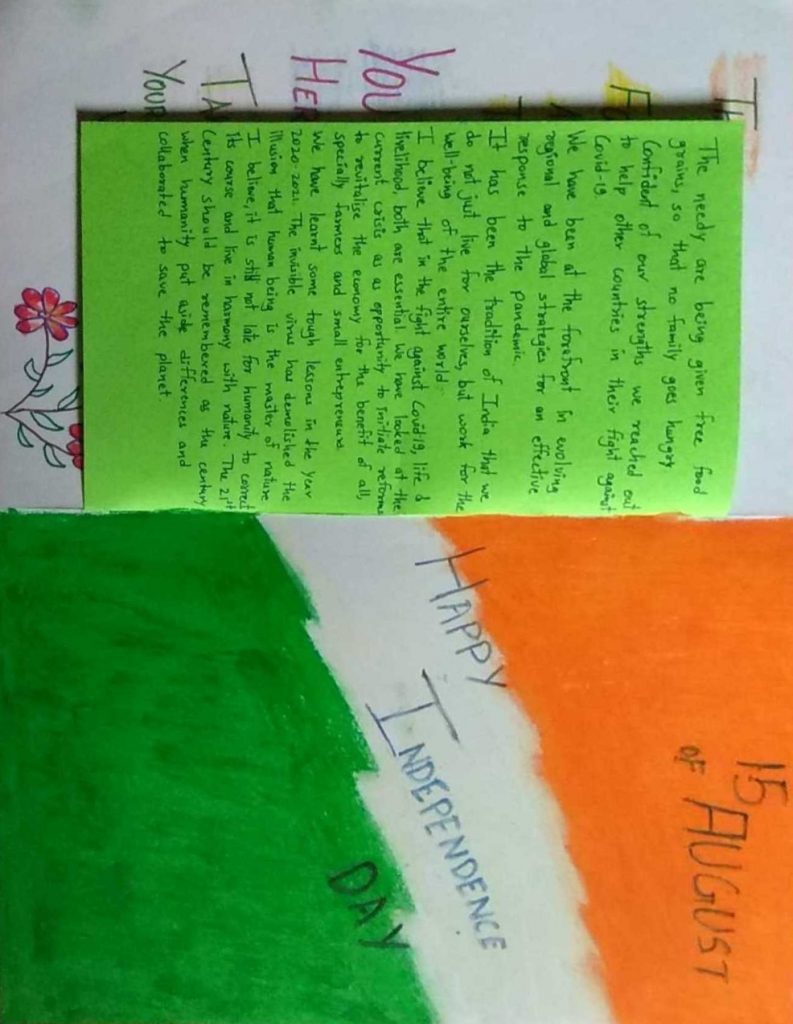 The needy are being given free food
grains, so that no family goes hungry
Confident of our strengths we reached out
to help other countries in their fight against
Covid-19.
We have been at the forefront in evolving
regional and global strategies for an effective
response to the pandemic.
It has been the tradition of India that we
do not just live for ourselves, but work for the
well-being of the entire world.
I believe that in the fight against Covid19, life &
livelihood, both are essential. We have looked at the
current crisis as as opportunity to initiate reforms
to revitalise the economy for the benefit of all,
specially farmers and small entrepreneurs.
We have learnt some tough lessons in the year
2020-2021. The invisible virus has demolished the
illusion that human being is the master of nature
I believe, it is still not late for humanity to correct
its course and live in harmony with nature. The 21st
Century should be remembered as the century
when humanity put aside differences and
collaborated to save the planet.
YOU
HER
TA
YOUR
15
OF AUGUST
HAPPY
INDEPENDENCE
DAY